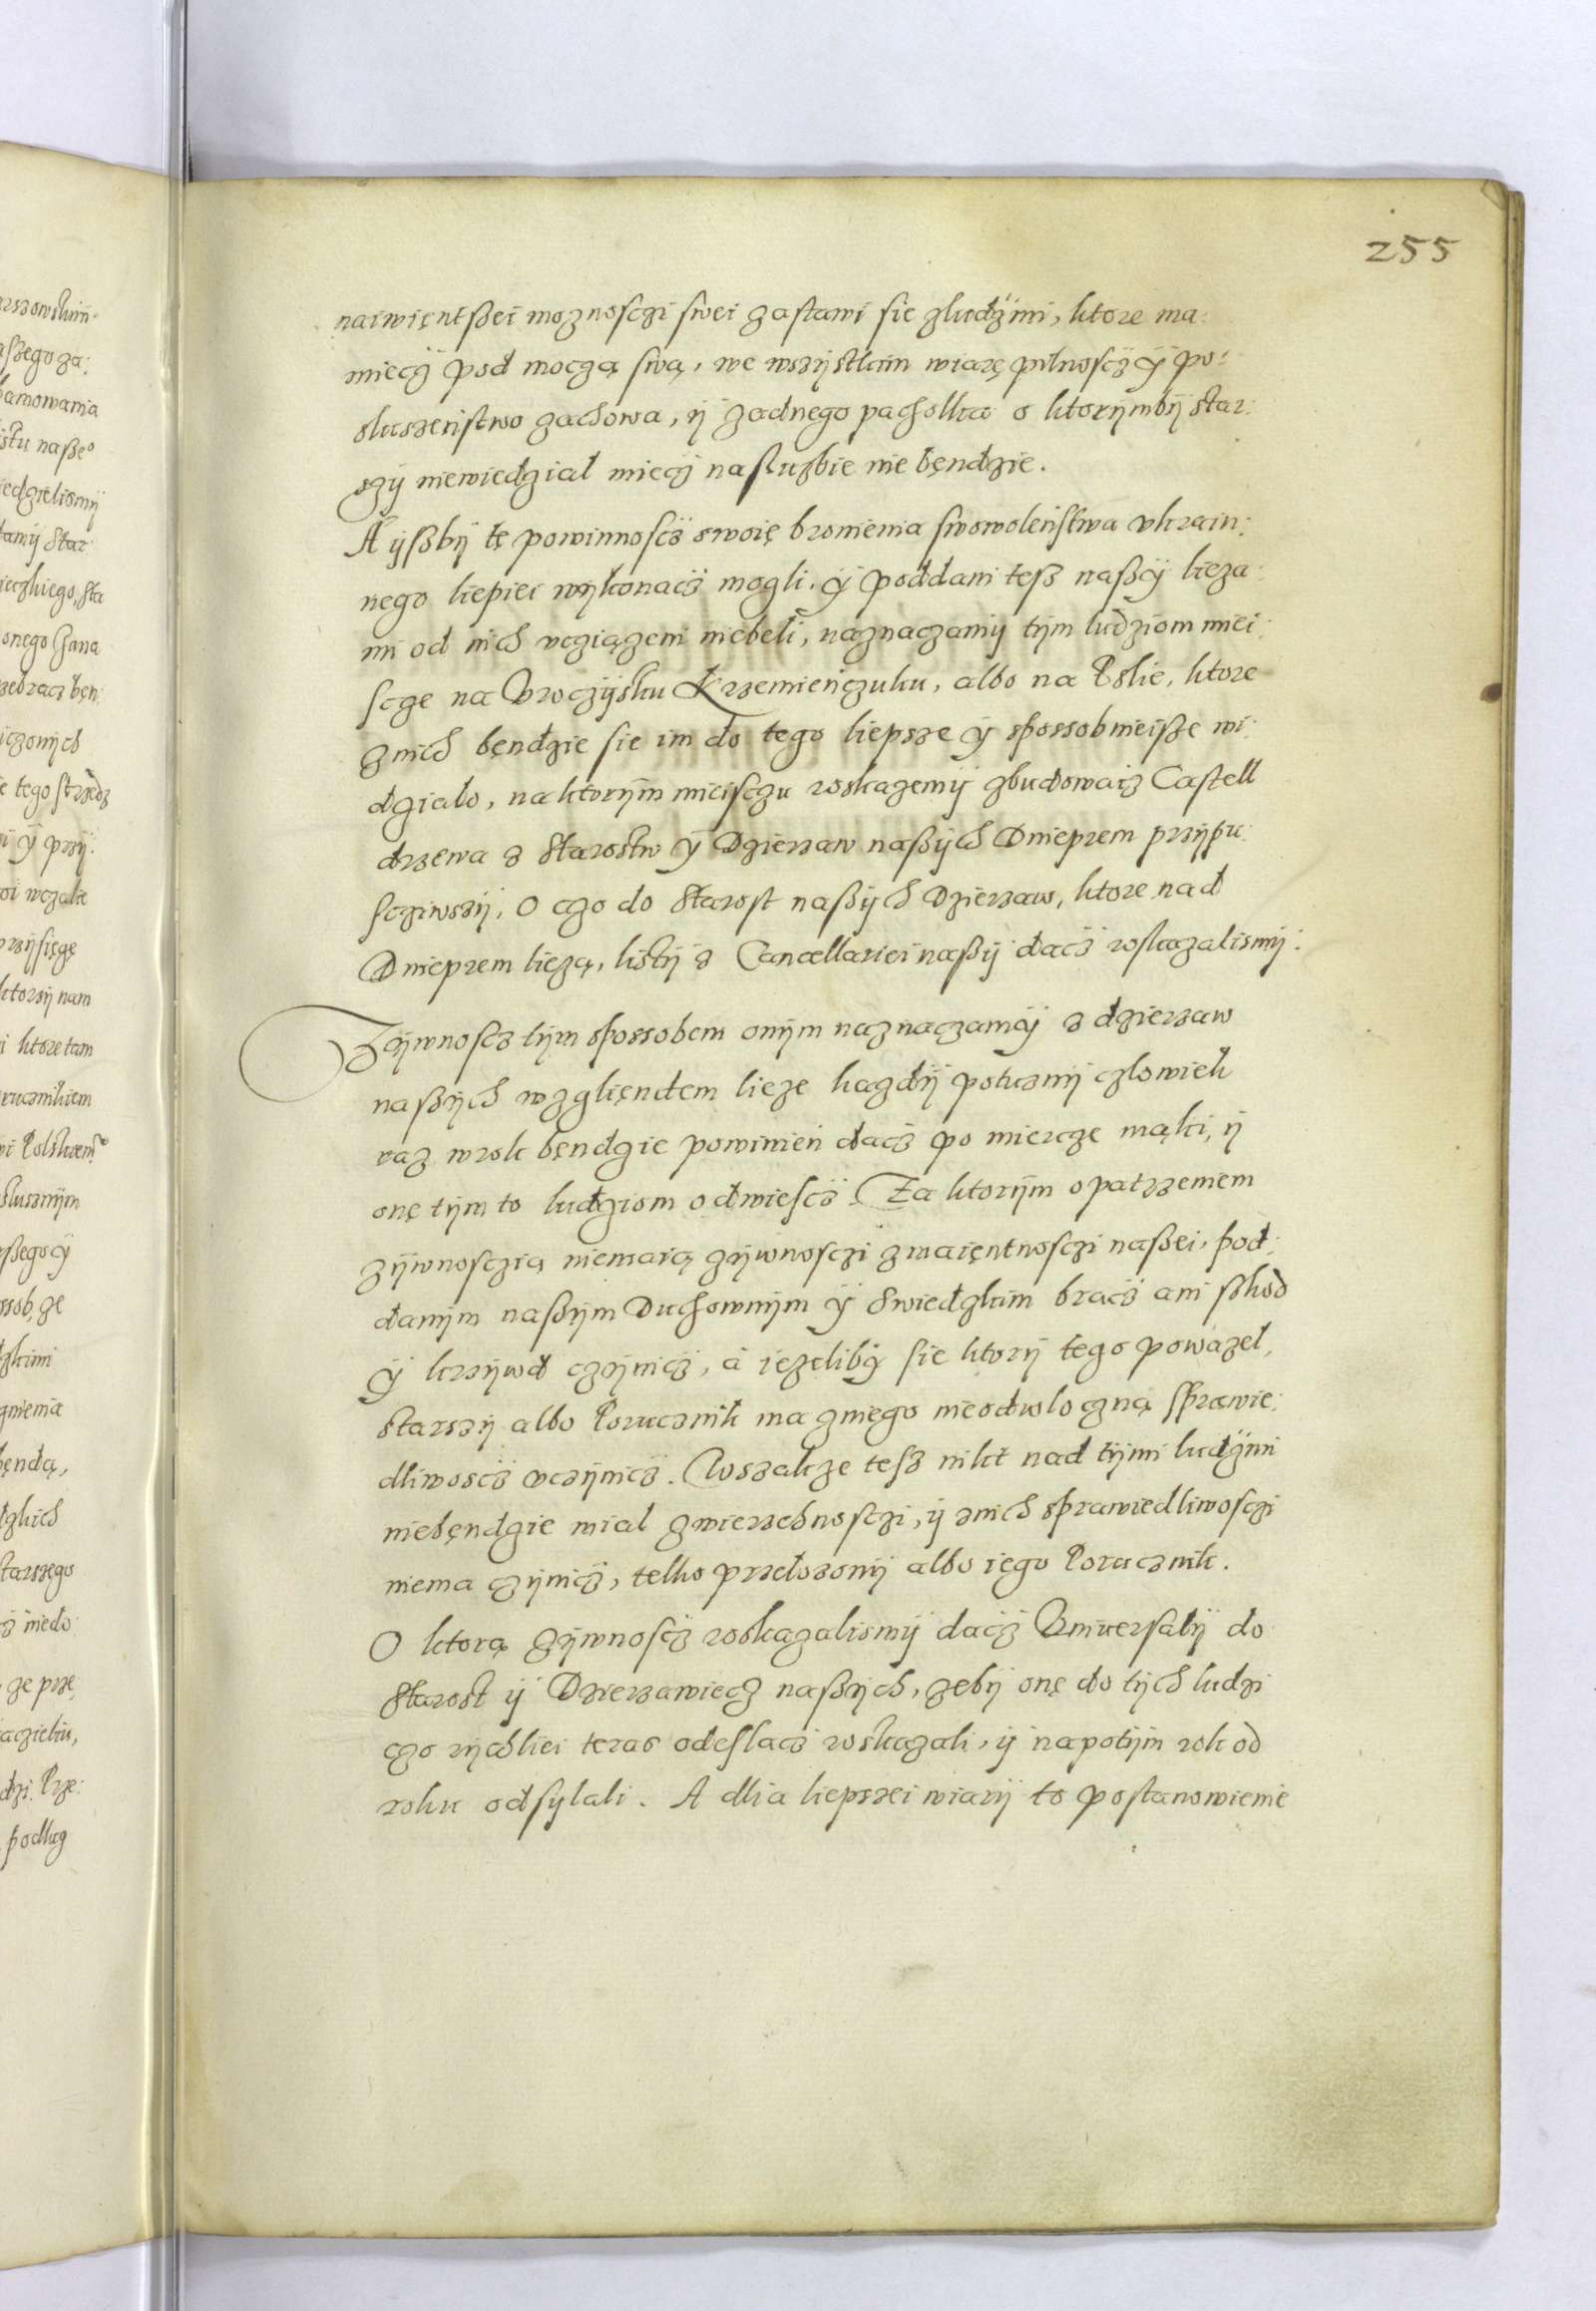 255
naiwiętßei moznosczi swei zastawi sie zludźmi, ktore ma:
miecz pod moczą swą, we wszÿstkim wiarę pilnoscz ÿ po:
sluszeństwo zachowa, ÿ zadnego pacholka o ktorÿmbÿ star:
szÿ niewiedzial miecz nasłuzbie nie bęndzie.
A ÿßbÿ tę powinnoscz swoię bronienia swowoleństwa vkrain:
nego liepiei wÿkonacz mogli. ÿ poddani tesz naßÿ lieza:
mi od nich vcziązeni niebeli, naznaczamÿ tÿm ludziom miei:
scze na Vroczÿsku Krzemieńczuku, albo na Pslie, ktore
znich bęndzie sie im do tego liepsze ÿ spossobnieisze wi:
dzialo, naktorÿm mieisczu roskazemÿ zbudowacz Castell
drzewa z starostw ÿ Dzierzaw naßÿch Dnieprem przÿpu:
scziwszÿ. O czo do starost naßÿch Dzierzaw, ktore nad
Dnieprem liezą, listÿ z Cancellariei naßÿ dacz roskazalismÿ.
Zÿwnoscz tÿm spossobem onÿm naznaczamÿ z dzierzaw
naßÿch wzglięndem lieze kazdÿ potuznÿ czlowiek
raz wrok bęndzie powinień dacz po miercze mąki, ÿ
onę tÿm to ludziom odwiescz. Za ktorÿm opatrzeniem
zÿwnosczią niemaią zÿwnosczi zmaiętnosczi naßei, pod:
danÿm naßÿm Duchownÿm ÿ swiedzkim bracz ani szkod
ÿ krzÿwd czÿnicz, a iezelibÿ sie ktorÿ tego powazel,
starszÿ albo Porucznik ma zniego nieodwloczną sprawie:
dliwoscz vczÿnicz. Wszakze tesz nikt nad tÿmi ludźmi
niebęndzie mial zwierzchnosczi, ÿ znich sprawiedliwosczi
niema czÿnicz, telko przełozonÿ albo iego Porucznik.
O ktorą zÿwnoscz roskazalismÿ dacz Vniwersalÿ do
Starost ÿ Dzierzawiecz naßÿch, zebÿ onę do tÿch ludzi
czo rÿchliei teras odeslacz roskazali, ÿ napotÿm rok od
roku odsÿlali. A dlia liepszei wiarÿ to postanowienie